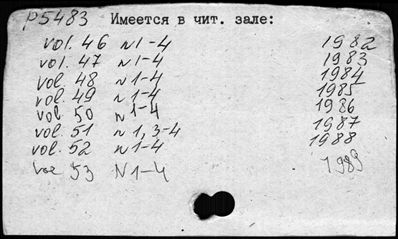 P5483 Имеется в чит. зале:
vol. 46 N1-4 1982
vol. 47 N1-4 1983
vol 48 N1-4 1984
vol. 49 N1-4 1985
vol 50 N1-4 1986
vol. 51 N1,3-4 1987
vol. 52 N1-4 1988
vol 53 N1-4 1989